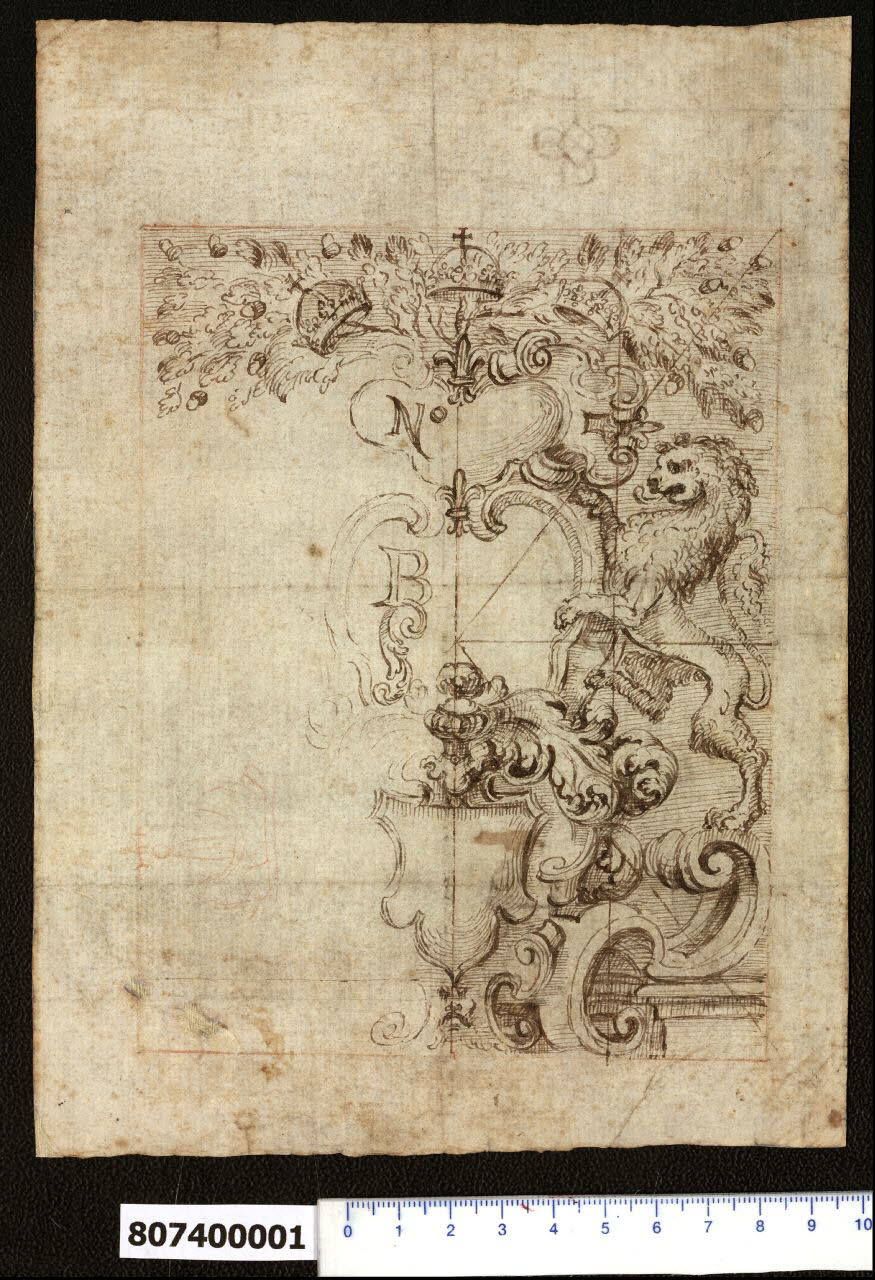 Nº
B
807400001
0 1 2 3 4 5 6 7 8 9 10